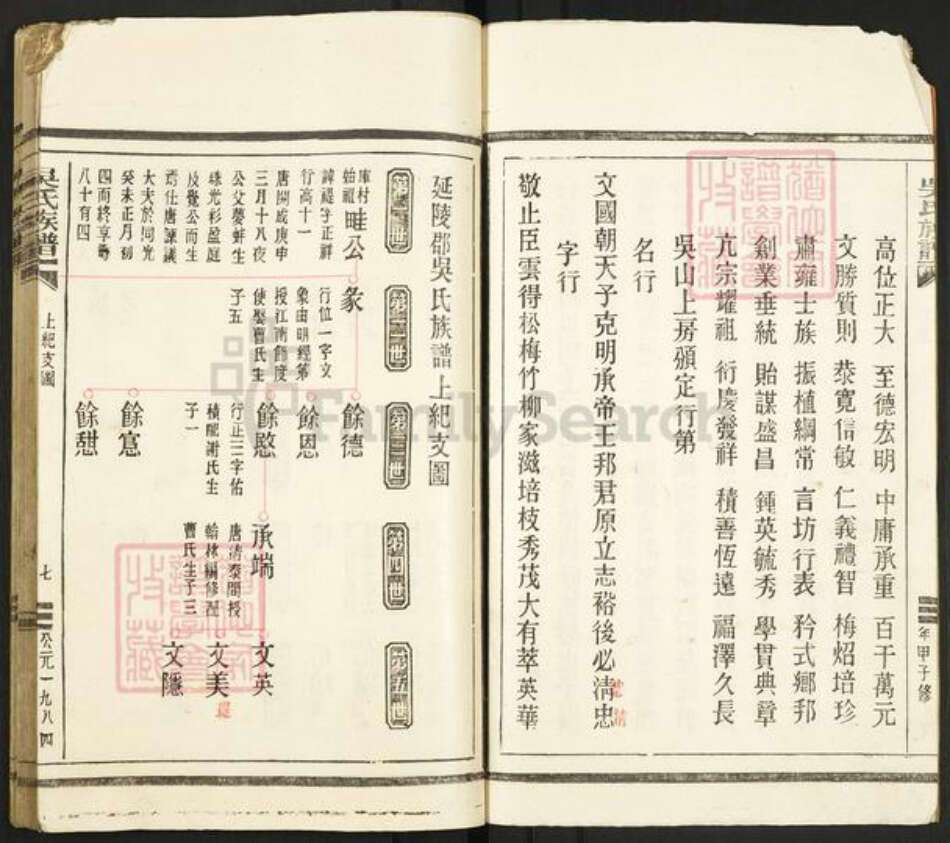 高位正大　至德宏明　中庸承重　百千萬元
文勝質則　恭寬信敏　仁義禮智　梅炤培珍
肅雍士族　振植綱常　言坊行表　矜式鄉邦
創業垂統　貽謀盛昌　鍾英毓秀　學貫典章
亢宗耀祖　衍慶發祥　積善恆遠　福澤久長
吳山上房頒定行第
名行
文國朝天子克明承帝王邦君原立志裕後必清忠
字行
敬止臣雲得松梅竹柳家滋培枝秀茂大有萃英華
年甲子修
延陵郡吳氏族譜上紀支圖
第二世
第三世
第四世
第五世
庫村
始祖
畦公
諱禔字正祥
行高十一
唐開成庚申
三月十八夜
公父夢蚌生
珠光彩盈庭
及覺公而生
焉仕唐諫議
大夫於同光
癸未正月初
四而終享壽
八十有四
彖
行位一字文
象由明經第
授江南節度
使娶曹氏生
子五
餘德
餘恩
餘愍
行止三字佑
積配謝氏生
子一
餘意
餘甜
承端
唐清泰間授
翰林編修配
曹氏生子三
文英
文美
文隱
吳氏族譜
上紀支圖
七
公元一九八四
FamilySearch